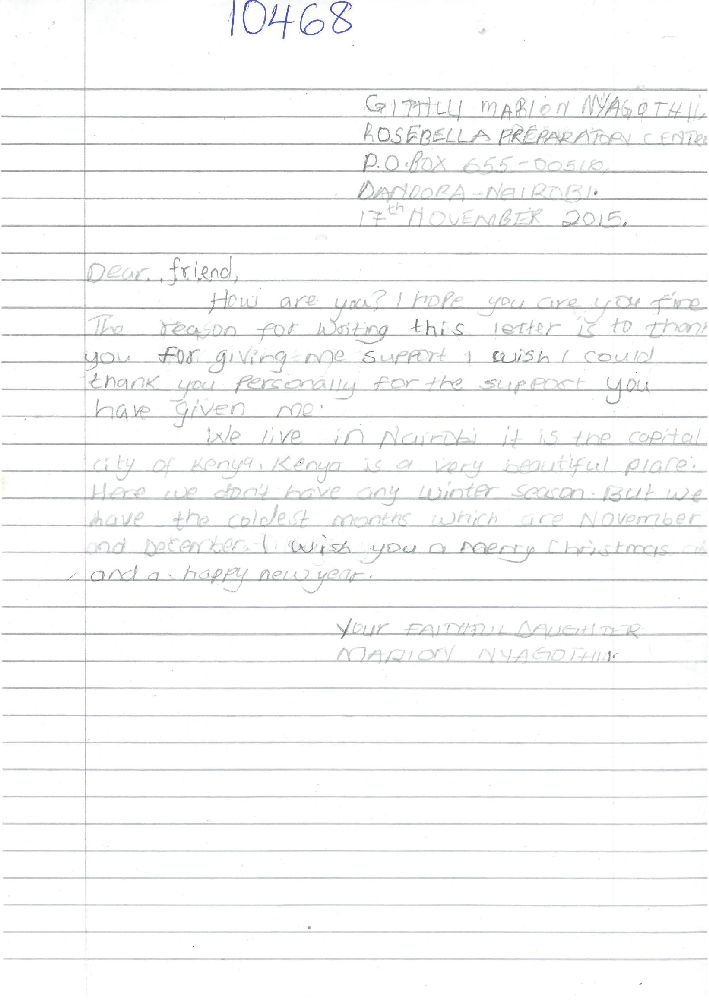 10468
GITHUI MARION NYAGOTHII
ROSEBELLA PREPARATORY CENTRE
P.O.BOX 655-00518,
DANDORA-NAIROBI.
17th NOVEMBER 2015.
Dear friend,
How are you? I hope you are you fine
The reason for writing this letter is to thank
you for giving me support I wish I could
thank you Personally for the support you
have given me.
We live in Nairobi it is the capital
city of Kenya. Kenya is a very beautiful place.
Here we don't have any winter season. But we
have the coldest months which are November
and December. I wish you a merry Christmas
and a happy new year.
Your FAITHFUL DAUGHTER
MARION NYAGOTHII.